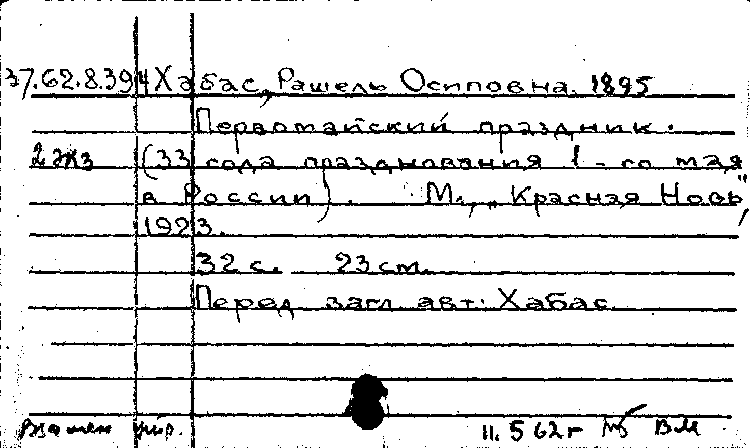 37.62.8.394 Хабас, Рашель Осиповна. 1895
Первомайский праздник.
2 экз (33 года празднования 1-го мая
в России). М., "Красная Новь",
1923.
32 с. 23 см.
Перед загл. авт: Хабас
Взамен 11.5 62г ВМ